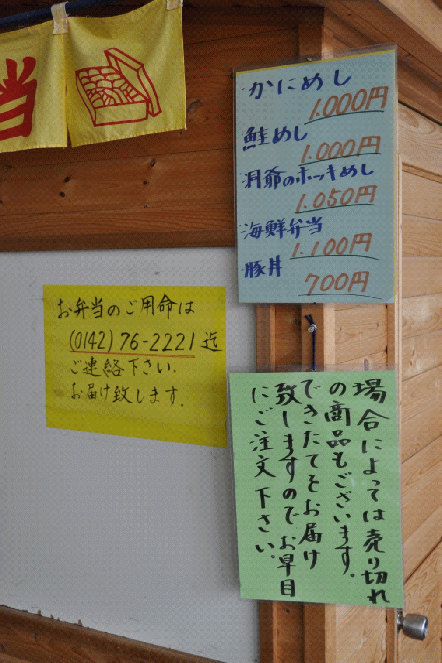 当
かにめし
1.000円
鮭めし
1.000円
洞爺のホッキめし
1.050円
海鮮弁当
1.100円
豚丼
700円
お弁当のご用命は
(0142)76-2221迄
ご連絡下さい.
お届け致します.
場合によっては売り切れ
の商品もございます。
できたてをお届け
致しますのでお早目
にご注文下さい。